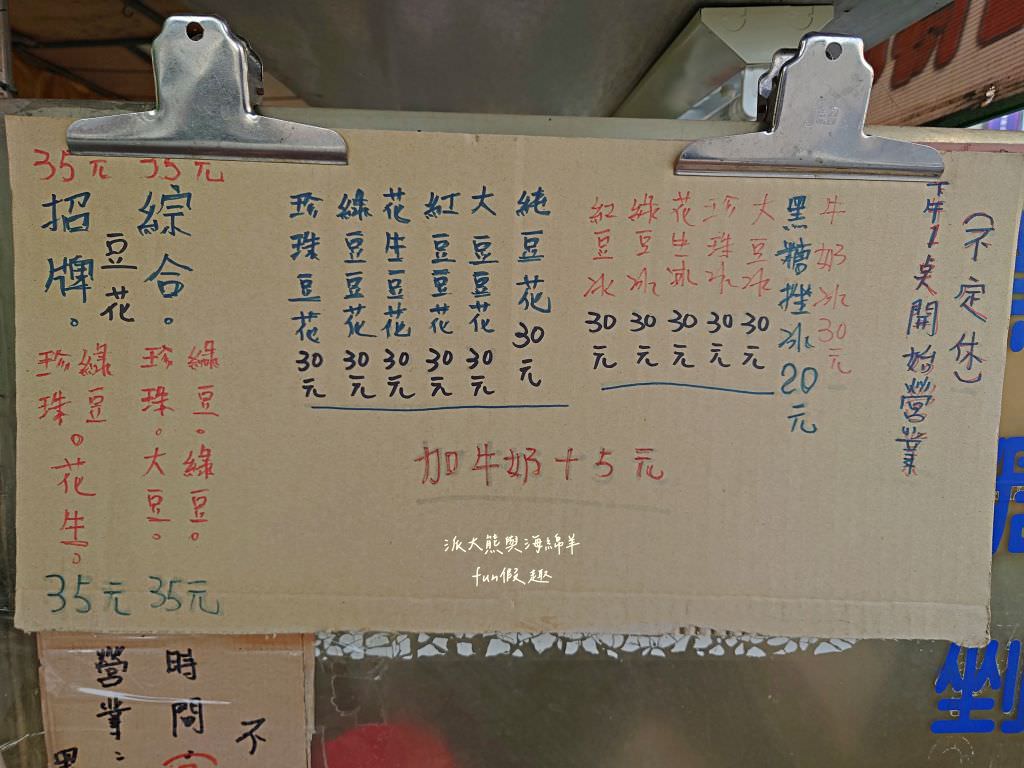 (不定休)
下午1点開始營業
牛奶冰30元
黑糖挫冰20元
大豆冰30元
珍珠冰30元
花生冰30元
綠豆冰30元
紅豆冰30元
純豆花30元
大豆豆花30元
紅豆豆花30元
花生豆花30元
綠豆豆花30元
珍珠豆花30元
加牛奶+5元
35元
綜合。
豆花
35元
招牌。
綠豆。綠豆。
珍珠。大豆。
35元
綠豆
珍珠。花生。
35元
派大熊與海綿羊
fun假趣
時間
營業:
不
剉